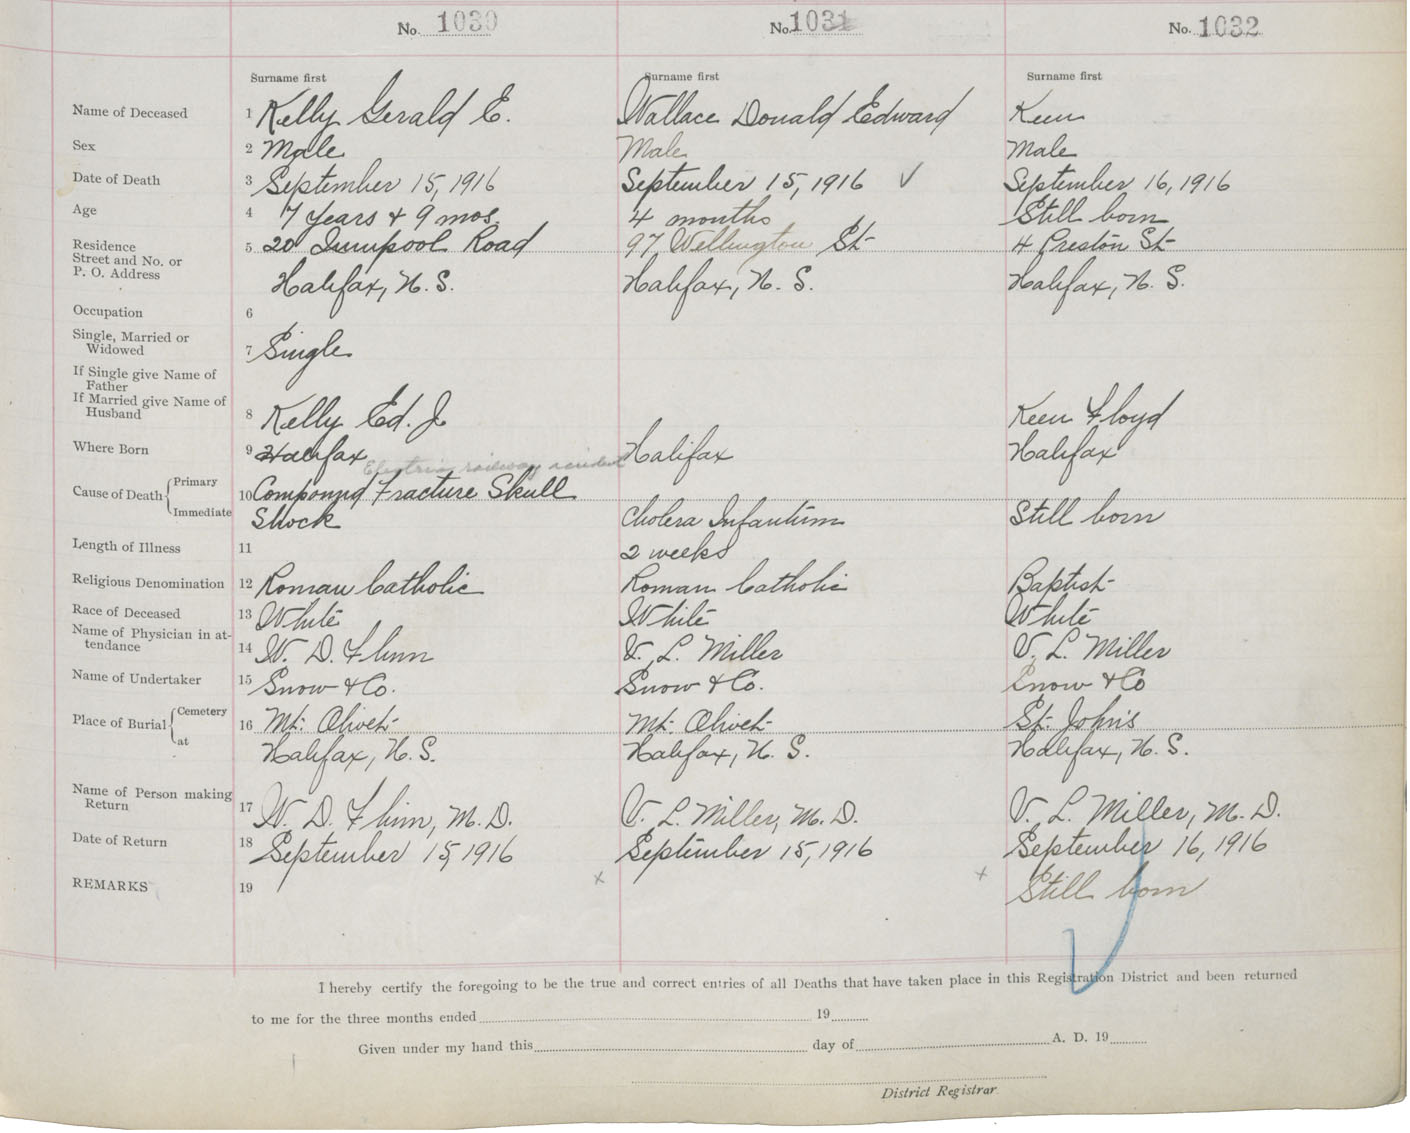 No. 1030 No. 1031 No. 1032
Surname first Surname first Surname first
Name of Deceased 1 Kelly Gerald E. Wallace Donald Edward Keen
Sex 2 Male Male Male
Date of Death 3 September 15, 1916 September 15, 1916 ✓ September 16, 1916
Age 4 7 years + 9 mos. 4 months Still born
Residence
Street and No. or 5 20 Road 97 Wellington St 4 Preston St
P. O. Address Halifax, N. S. Halifax, N. S. Halifax, N. S.
Occupation 6
Single, Married or
Widowed 7 Single
If Single give Name of
Father
If Married give Name of
Husband 8 Kelly Ed. J. Keen Floyd
Where Born 9 Halifax Halifax Halifax
Electric railway accident
Cause of Death { Primary 10 Compound Fracture Skull
Immediate Shock Cholera Infantum Still born
Length of Illness 11 2 weeks
Religious Denomination 12 Roman Catholic Roman Catholic Baptist
Race of Deceased 13 White White White
Name of Physician in at-
tendance 14 W. D. Flinn V. L. Miller V. L. Miller
Name of Undertaker 15 Snow + Co. Snow + Co. Snow + Co
Place of Burial { Cemetery 16 Mt. Olivet Mt. Olivet St. John's
at Halifax, N. S. Halifax, N. S. Halifax, N. S.
Name of Person making
Return 17 W. D. Flinn, M. D. V. L. Miller, M. D. V. L. Miller, M. D.
Date of Return 18 September 15, 1916 September 15, 1916 September 16, 1916
REMARKS 19 x x Still born
I hereby certify the foregoing to be the true and correct entries of all Deaths that have taken place in this Registration District and been returned
to me for the three months ended 19
Given under my hand this day of A. D. 19
District Registrar.